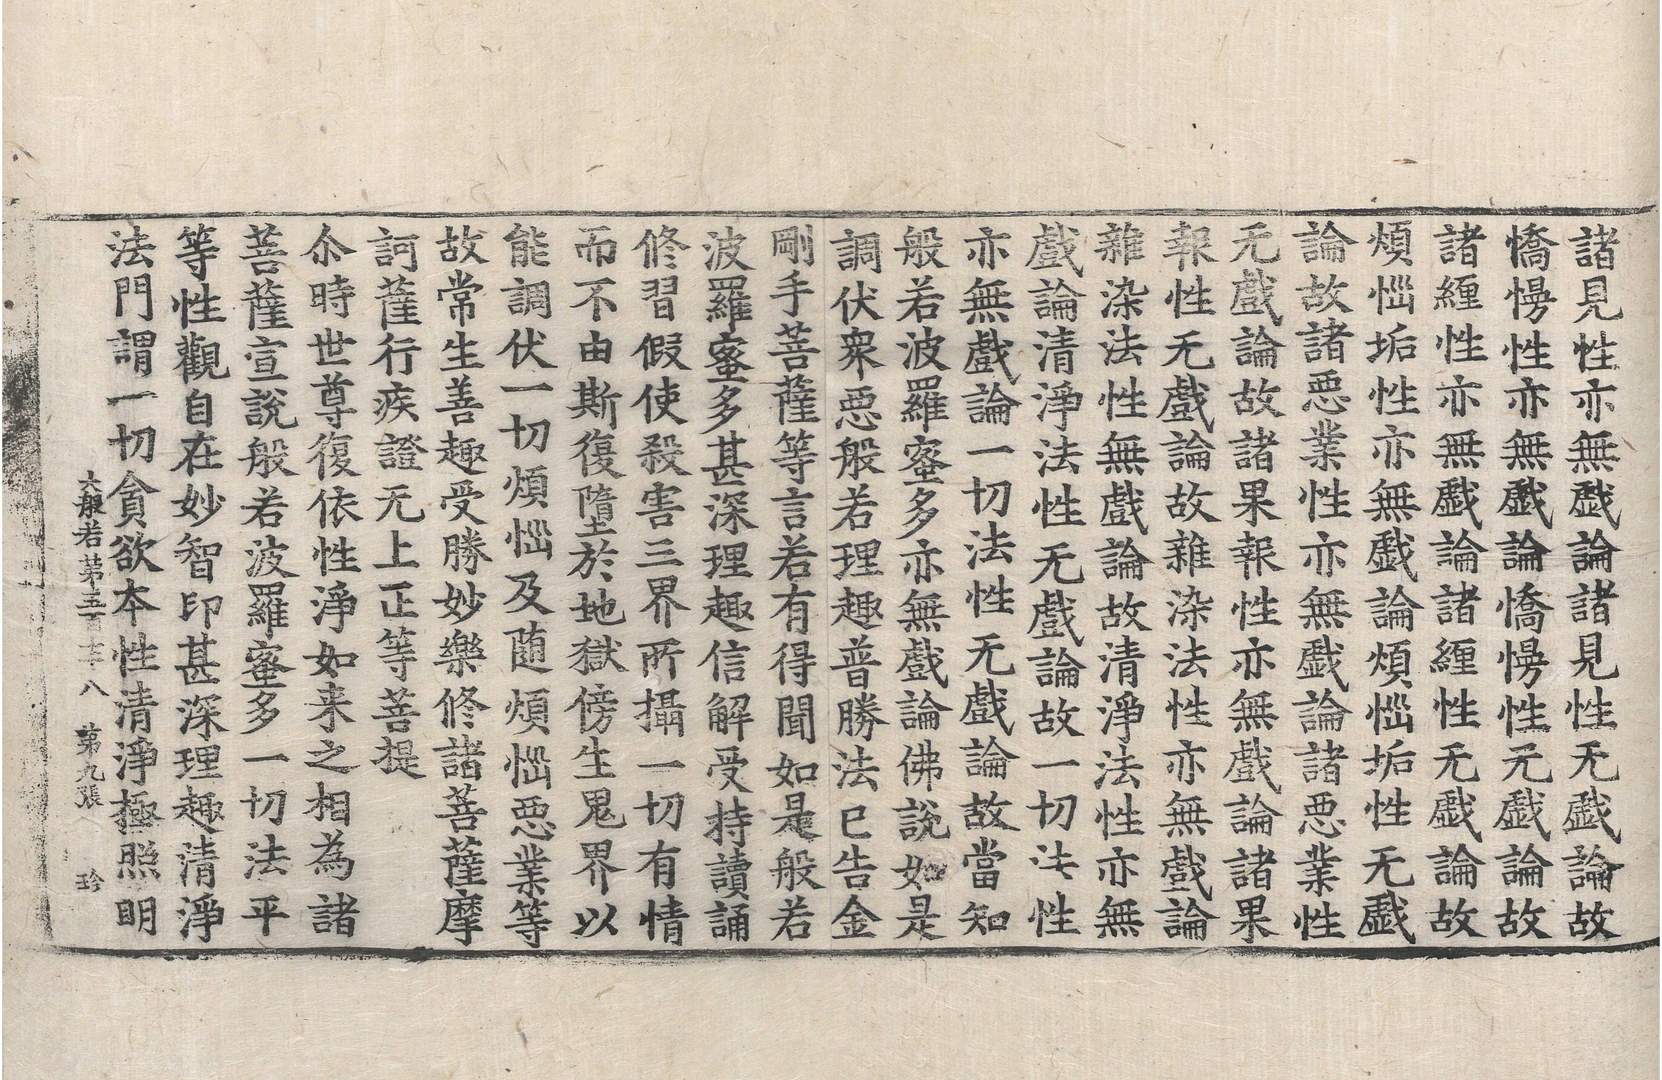 諸見性亦無戲論諸見性无戲論故
憍慢性亦無戲論憍慢性无戲論故
諸纏性亦無戲論諸纏性无戲論故
煩惱垢性亦無戲論煩惱垢性无戲
論故諸惡業性亦無戲論諸惡業性
无戲論故諸果報性亦無戲論諸果
報性无戲論故雜染法性亦無戲論
雜染法性無戲論故清淨法性亦無
戲論清淨法性无戲論故一切法性
亦無戲論一切法性无戲論故當知
般若波羅蜜多亦無戲論佛說如是
調伏衆惡般若理趣普勝法已告金
剛手菩薩等言若有得聞如是般若
波羅蜜多甚深理趣信解受持讀誦
修習假使殺害三界所攝一切有情
而不由斯復墮於地獄傍生鬼界以
能調伏一切煩惱及随煩惱惡業等
故常生善趣受勝妙樂修諸菩薩摩
訶薩行疾證无上正等菩提
尒時世尊復依性淨如来之相為諸
菩薩宣說般若波羅蜜多一切法平
等性觀自在妙智印甚深理趣清淨
法門謂一切貪欲本性清淨極照明
大般若第五百七十八 第九張 珍